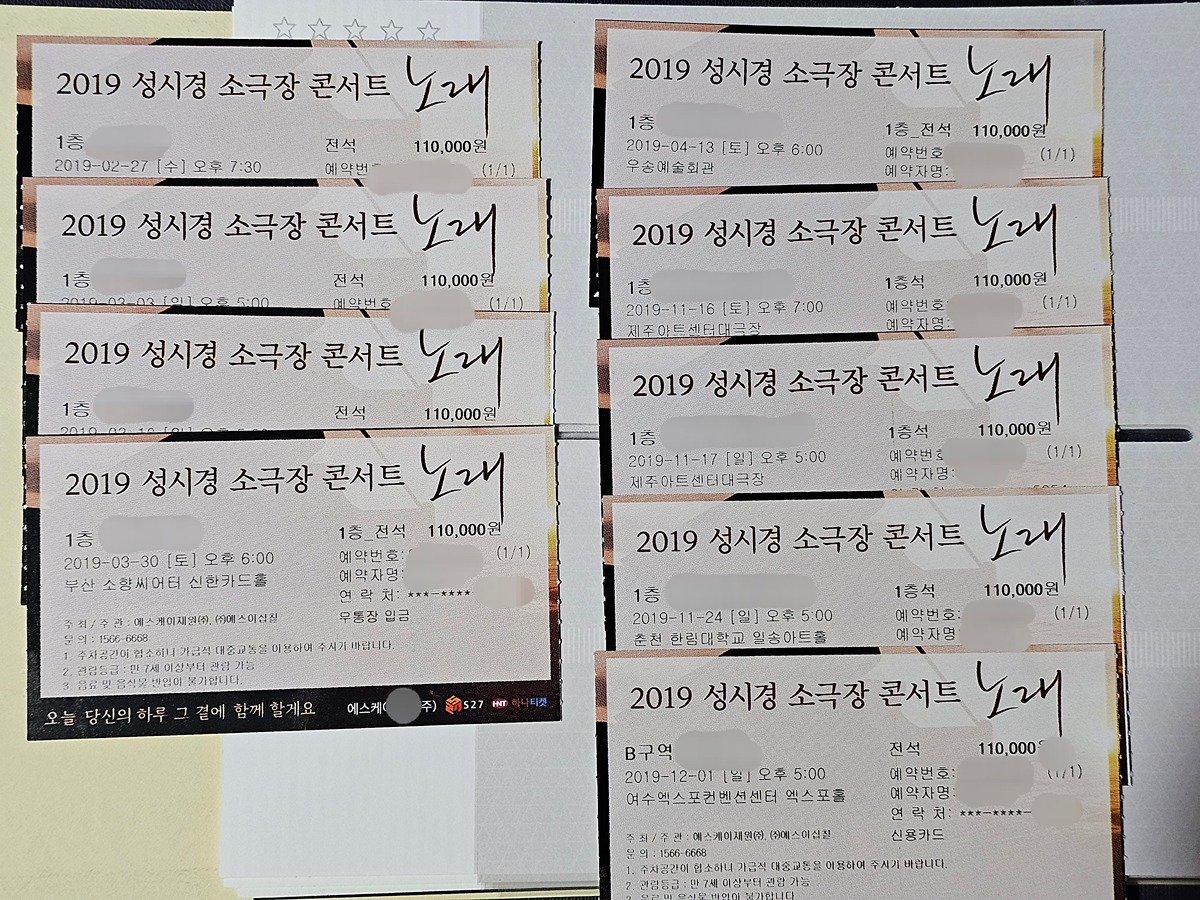 2019 성시경 소극장 콘서트 노래
1층
전석 110,000원
2019-02-27 [수] 오후 7:30
예약번 (1/1)
2019 성시경 소극장 콘서트 노래
1층
전석 110,000원
2019-03-03 [일] 오후 5:00
예약번호 (1/1)
2019 성시경 소극장 콘서트 노래
1층
전석 110,000원
2019 성시경 소극장 콘서트 노래
1층
1층_전석 110,000원
2019-03-30 [토] 오후 6:00
예약번호: (1/1)
부산 소향씨어터 신한카드홀
예약자명:
연 락 처: ***-****
무통장 입금
주 최 / 주 관 : 에스케이재원㈜, ㈜에스이십칠
문 의 : 1566-6668
1. 주차공간이 협소하니 가급적 대중교통을 이용하여 주시기 바랍니다.
2. 관람등급 : 만 7세 이상부터 관람 가능
3. 음료 및 음식물 반입이 불가합니다.
오늘 당신의 하루 그 곁에 함께 할게요
에스케이 주) S27 HNT 하나티켓
2019 성시경 소극장 콘서트 노래
1층
1층_전석 110,000원
2019-04-13 [토] 오후 6:00
예약번호 (1/1)
우송예술회관
예약자명:
2019 성시경 소극장 콘서트 노래
1층
1층석 110,000원
2019-11-16 [토] 오후 7:00
예약번호 (1/1)
제주아트센터대극장
예약자명:
2019 성시경 소극장 콘서트 노래
1층
1층석 110,000원
2019-11-17 [일] 오후 5:00
예약번호 (1/1)
제주아트센터대극장
예약자명:
2019 성시경 소극장 콘서트 노래
1층
1층석 110,000원
2019-11-24 [일] 오후 5:00
예약번호: (1/1)
춘천 한림대학교 일송아트홀
예약자명
2019 성시경 소극장 콘서트 노래
B구역
전석 110,000
2019-12-01 [일] 오후 5:00
예약번호: (1/1)
여수엑스포컨벤션센터 엑스포홀
예약자명:
연 락 처: ***-****-
신용카드
주 최 / 주 관 : 에스케이재원㈜, ㈜에스이십칠
문 의 : 1566-6668
1. 주차공간이 협소하니 가급적 대중교통을 이용하여 주시기 바랍니다.
2. 관람등급 : 만 7세 이상부터 관람 가능
3. 음료 및 음식물 반입이 불가합니다.